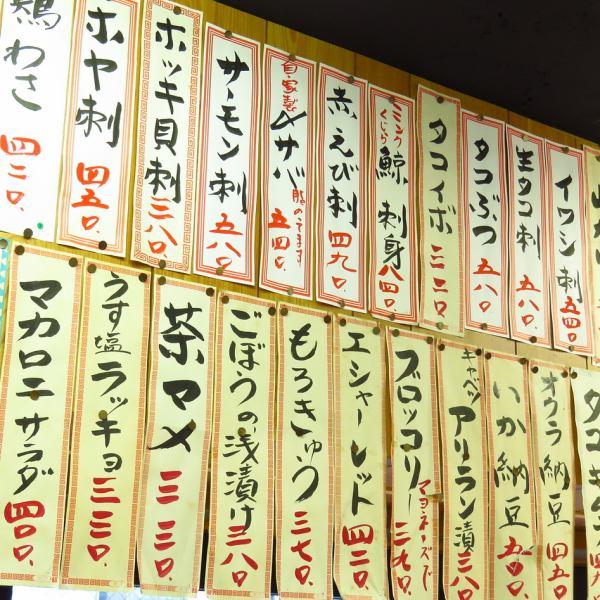 イワシ刺 五四〇.
生タコ刺 五八〇.
タコぶつ 五八〇.
タコイボ 三二〇.
ミンク
くじら
鯨刺身 八四〇.
赤えび刺 四九〇.
自家製
〆サバ
脂のってます
五四〇.
サーモン刺 五八〇.
ホッキ貝刺 三八〇.
ホヤ刺 四五〇.
わさ 四二〇.
タコキ
オクラ納豆 四五〇.
いか納豆 五〇〇.
キャベツ
アリラン漬 三八〇.
ブロッコリー
マヨネーズで
三九〇.
エシャーレット 四二〇.
もろきゅう 三七〇.
ごぼうの浅漬け 三八〇.
茶マメ 三三〇.
うす塩ラッキョ 三三〇.
マカロニサラダ 四〇〇.